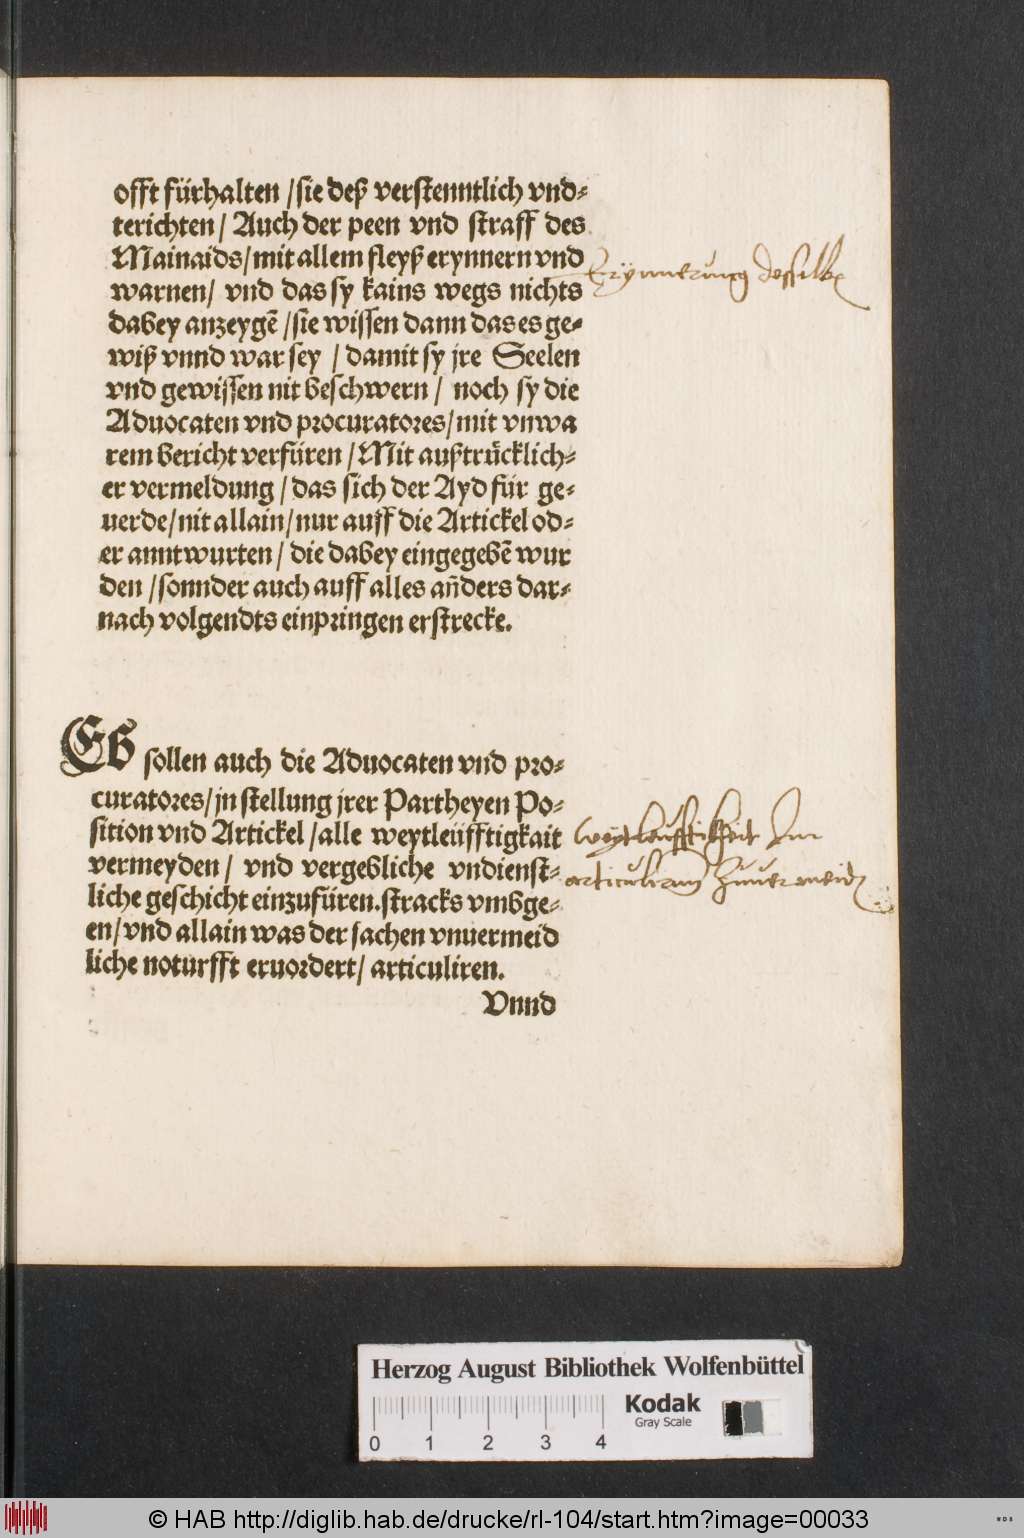 offt fürhalten / sie deß verstenntlich vnd-
terichten / Auch der peen vnd straff des
Mainaids / mit allem fleyß erynnern vnd
Erynnerung desselbē
warnen / vnd das sy kains wegs nichts
dabey anzeygē / sie wissen dann das es ge-
wiß vnnd war sey / damit sy jre Seelen
vnd gewissen nit beschwern / noch sy die
Aduocaten vnd procuratores / mit vnwa
rem bericht verfüren / Mit außtrücklich-
er vermeldung / das sich der Ayd für ge-
uerde / nit allain / nur auff die Artickel od-
er anntwurten / die dabey eingegebē wur
den / sonnder auch auff alles an̄ders dar-
nach volgendts einpringen erstrecke.
ES sollen auch die Aduocaten vnd pro-
curatores / jn stellung jrer Partheyen Po-
sition vnd Artickel / alle weytleüfftigkait
weytleufftikheit Im
vermeyden / vnd vergebliche vndienst-
articulirn zuuermeidē
liche geschicht einzufüren. stracks vmbge-
en / vnd allain was der sachen vnuermeid
liche noturfft eruordert / articuliren.
Vnnd
Herzog August Bibliothek Wolfenbüttel
Kodak
Gray Scale
0 1 2 3 4
© HAB http://diglib.hab.de/drucke/rl-104/start.htm?image=00033